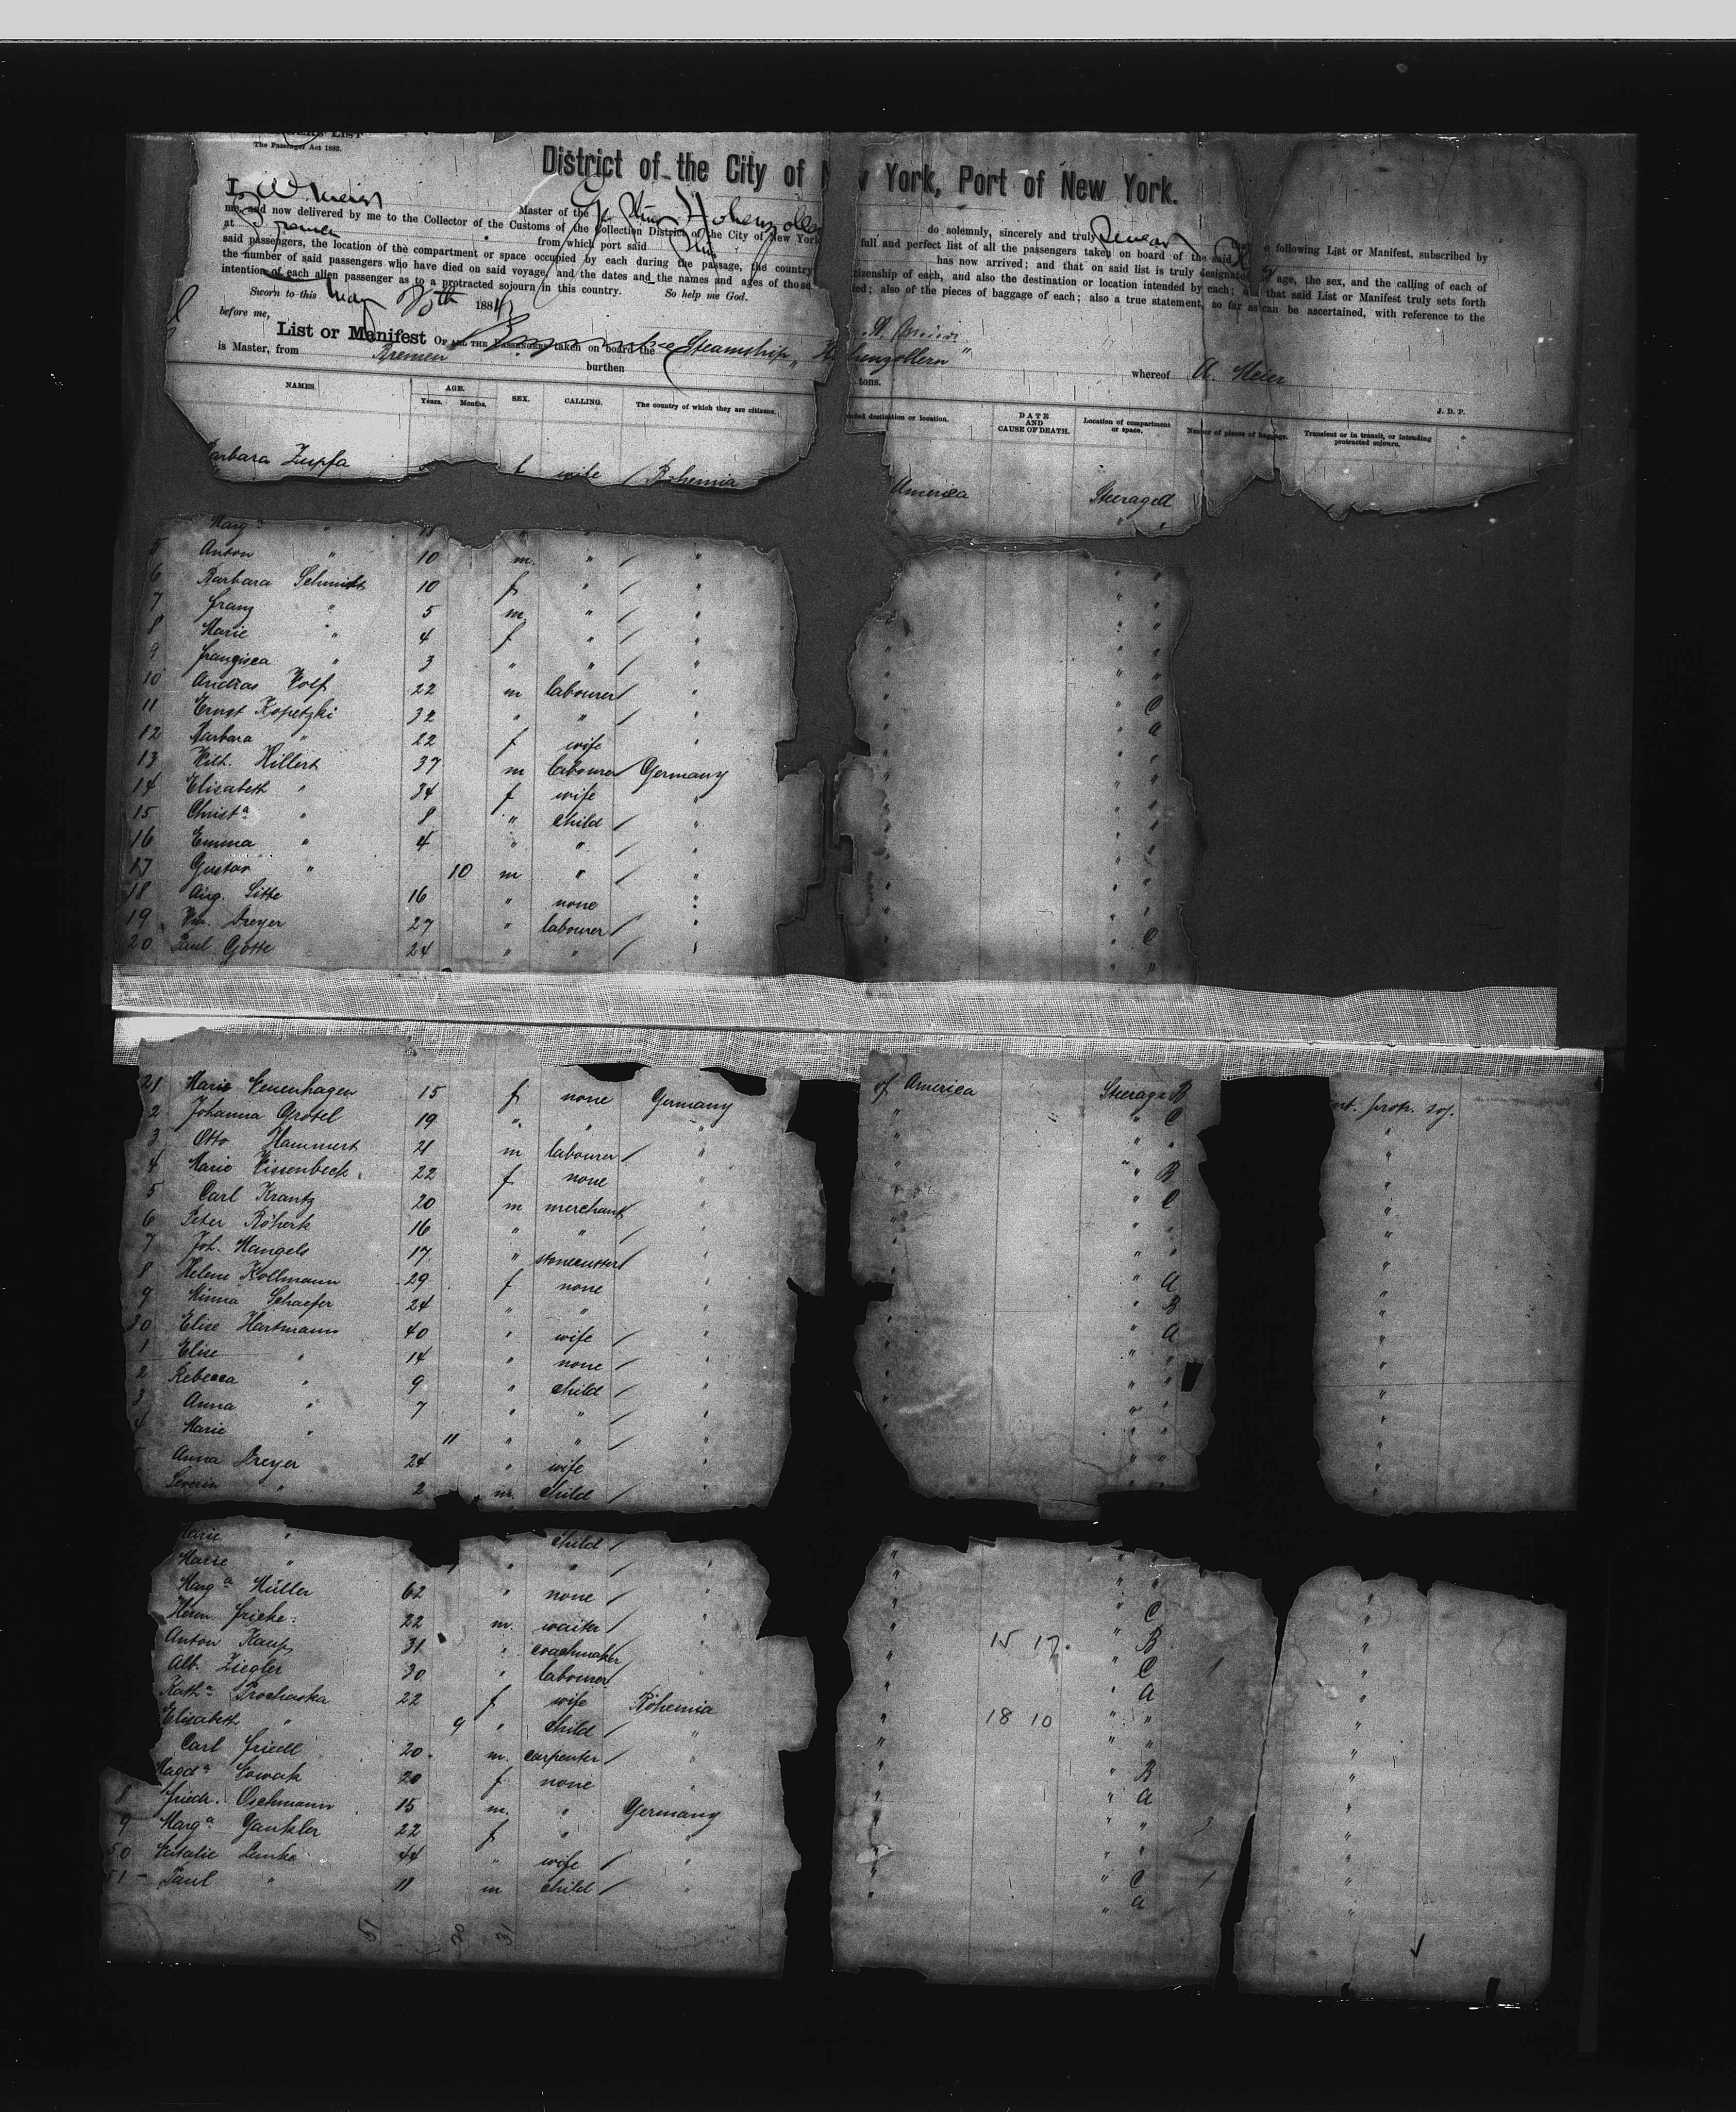 The Passenger Act 1882.
District of the City of New York, Port of New York.
I, W. Meier Master of the Hohenzollern do solemnly, sincerely and truly swear that the following List or Manifest, subscribed by
me, and now delivered by me to the Collector of the Customs of the Collection District of the City of New York full and perfect list of all the passengers taken on board of the said
at Bremen from which port said Ship has now arrived; and that on said list is truly designated age, the sex, and the calling of each of
said passengers, the location of the compartment or space occupied by each during the passage, the country citizenship of each, and also the destination or location intended by each; and that said List or Manifest truly sets forth
the number of said passengers who have died on said voyage, and the dates and the names and ages of those ied; also of the pieces of baggage of each; also a true statement, so far as can be ascertained, with reference to the
intention of each alien passenger as to a protracted sojourn in this country. So help me God.
Sworn to this May 188
before me,
List or Manifest OF ALL THE PASSENGERS taken on board the Steamship " Hohenzollern " whereof A. Meier
is Master, from Bremen burthen tons.
J. D. P.
NAMES. AGE. Years. Months. SEX. CALLING. The country of which they are citizens. nded destination or location. DATE AND CAUSE OF DEATH. Location of compartment or space. Number of pieces of baggage. Transient or in transit, or intending protracted sojourn.
arbara Zupfa f wife / Bohemia America Steerage A
Marg a " 11 "
5 Anton " 10 m. " / " " "
6 Barbara Schmidt 10 f " / " " "
7 Franz " 5 m. " / " " "
8 Marie " 4 f " / " " "
9 Franzisca " 3 " " / " " "
10 Andras Wolf 22 m labourer / " " C
11 Ernst Kopetzki 32 " " / " " A
12 Barbara " 22 f wife " " "
13 Wilh. Hillert 37 m labourer / Germany " "
14 Elisabeth " 34 f wife " " "
15 Christ a " 8 " child / " " "
16 Emma " 4 " " / " " "
17 Gustav " 10 m " / " " "
18 Aug. Sitte 16 " none " " "
19 Wm. Dreyer 27 " labourer / " " C
20 Paul Götte 24 " " / " " "
21 Marie Neuenhagen 15 f none Germany of America Steerage B nt. protr. soj.
2 Johanna Grobel 19 " " " " " C "
3 Otto Hammert 21 m labourer / " " " " "
4 Marie Wissenbeck 22 f none " " " B "
5 Carl Krantz 20 m merchant / " " " C "
6 Peter Röherk 16 " " / " " " " "
7 Joh. Mangels 17 " stonecutter / " " " " "
8 Helene Kollmann 29 f none " " " A "
9 Minna Schaefer 24 " " " " " B "
30 Elise Hartmann 40 " wife / " " " A "
1 Elise " 14 " none / " " " " "
2 Rebecca " 9 " child / " " " " "
3 Anna " 7 " " / " " " " "
4 Marie " 11 " " / " " " " "
Anna Dreyer 24 " wife " " " " "
" 2 m. child / " " "
Marie " child / " " "
Marie " " " / " " " "
Marg a Müller 62 " none / " " " C "
Herm. Fricke 22 m. waiter / " 15 17. " B "
Anton Kaup 31 " coachmaker / " " C 1 "
Alb. Ziegler 30 " labourer / " " " A "
Kath a Prochaska 22 f wife Bohemia " 18 10 " " "
Elisabeth " 9 " child / " " " " "
Carl Friedl 20 m. carpenter / " " " B "
Magd a Nowak 20 f none " " " A "
8 Friedr. Oschmann 15 m. " Germany " " " 3 "
9 Marg a Gankler 22 f " " " " " "
50 Natalie Lemke 44 " wife / " " " C 1 "
51 Paul " 11 m child / " " " A "
51 20 31